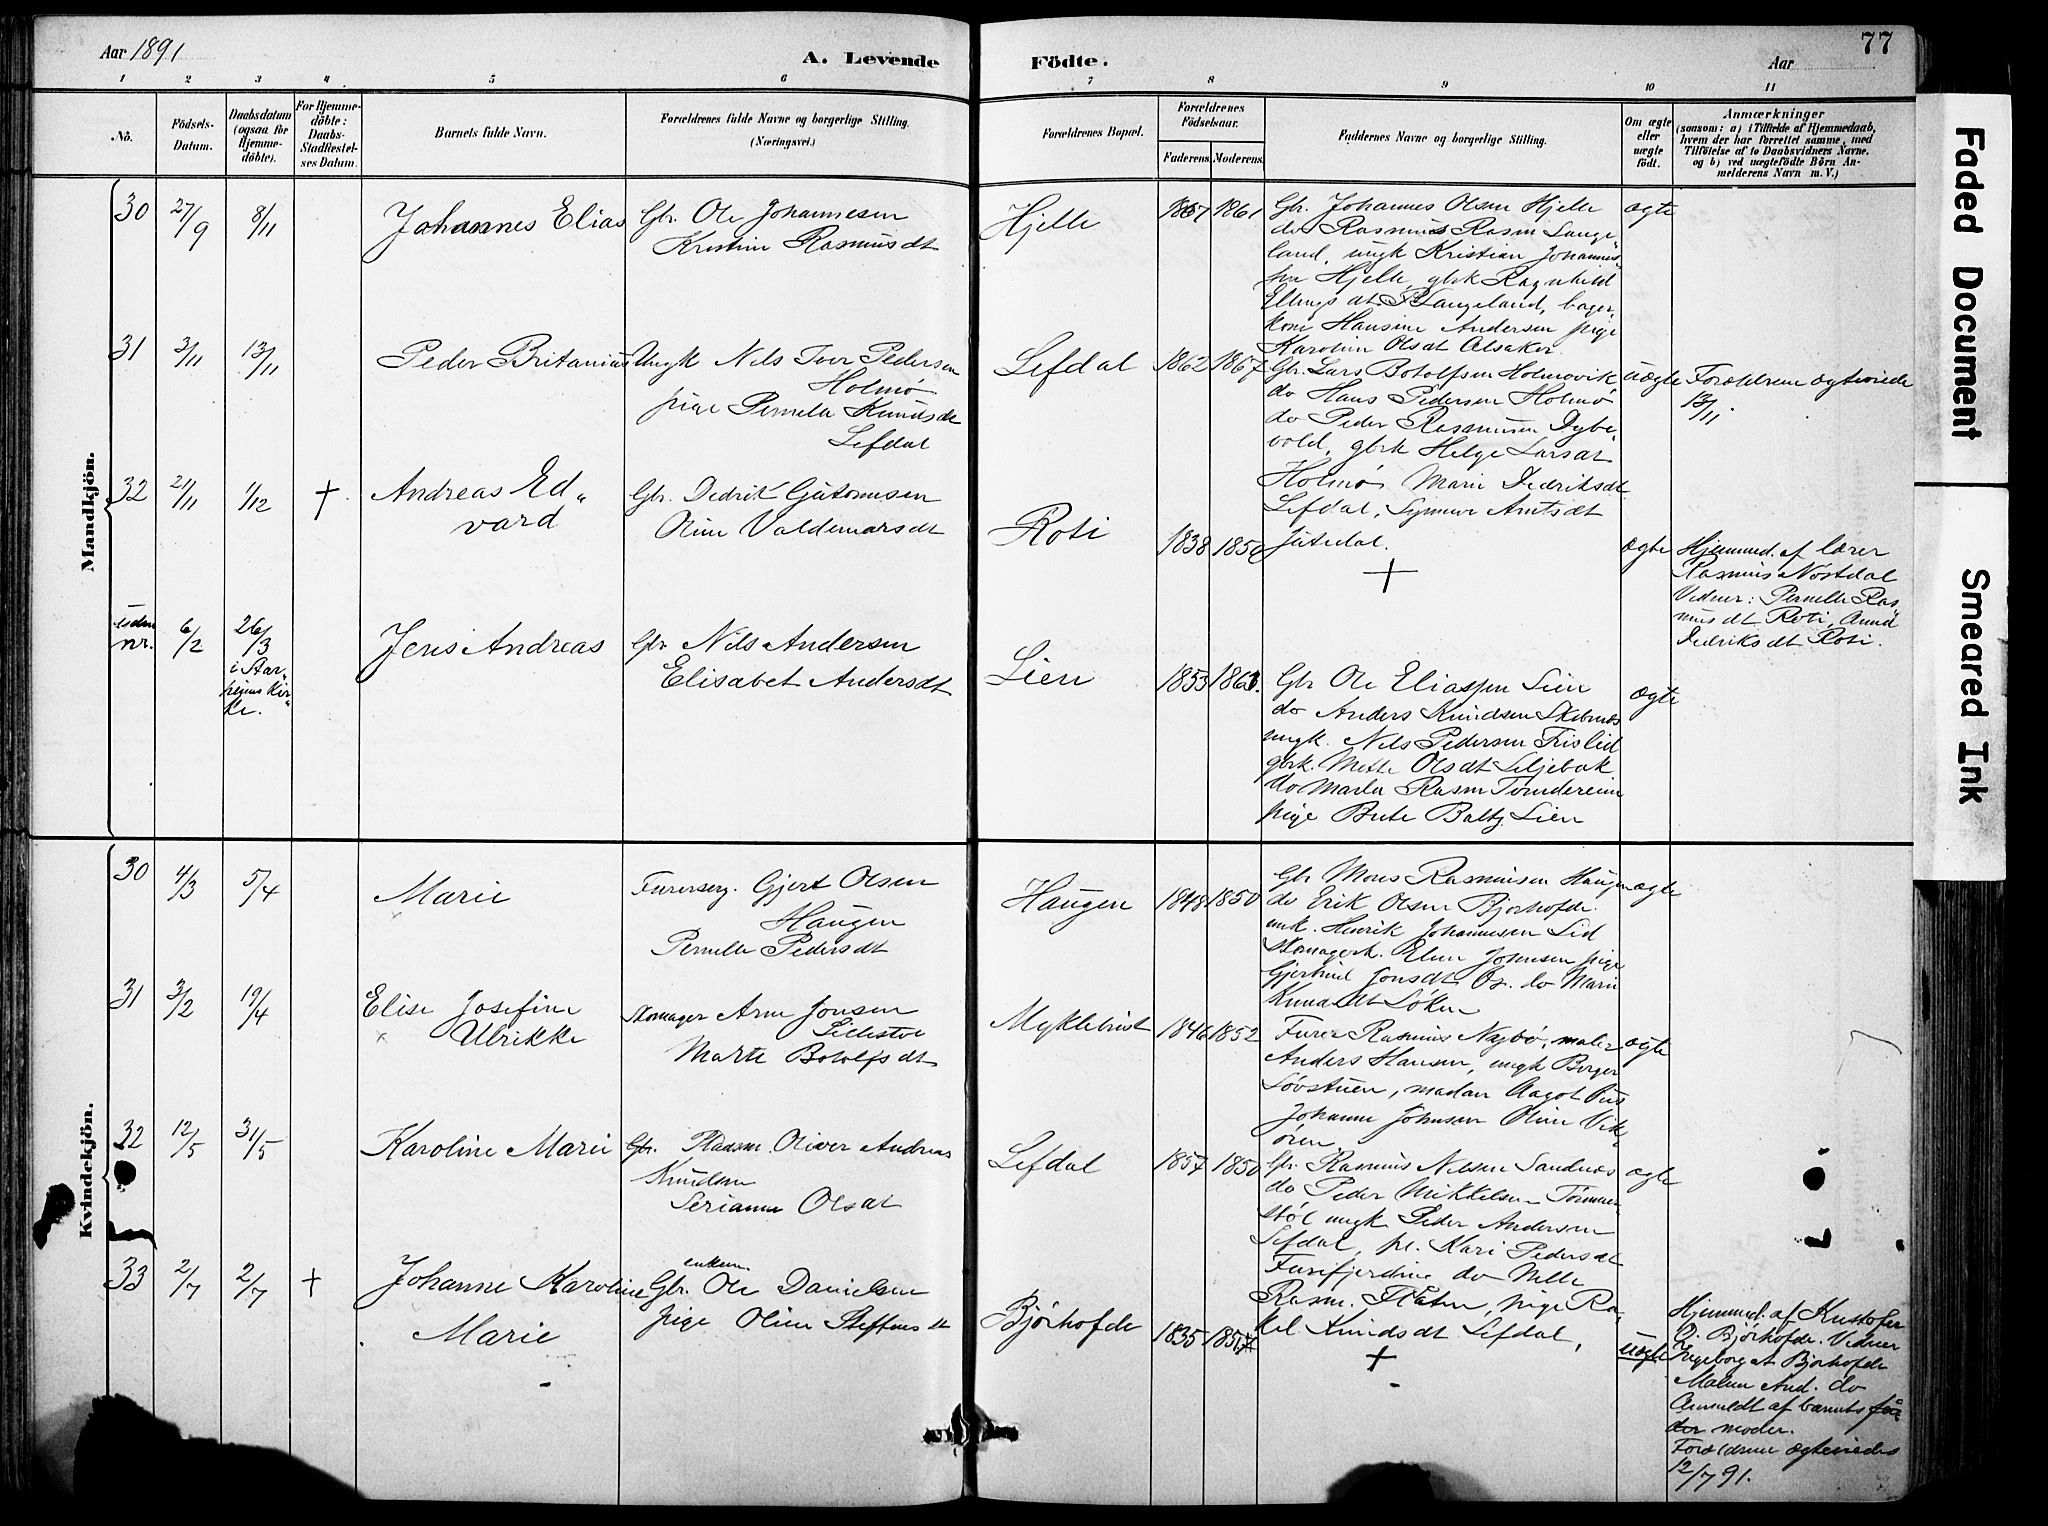 Aar 1891
A. Levende
Födte.
Aar
77
1 2 3 4 5 6 7 8 9 10 11
No.
Födsels-
Datum.
Daabsdatum
(ogsaa for
Hjemme-
döbte).
For Hjemme-
döbte:
Daabs-
Stadfæstel-
ses Datum.
Barnets fulde Navn.
Forældrenes fulde Navne og borgerlige Stilling.
(Næringsvei.)
Forældrenes Bopæl.
Forældrenes
Födselsaar.
Faderens. Moderens.
Faddernes Navne og borgerlige Stilling.
Om ægte
eller
uægte
födt.
Anmærkninger
(saasom: a) i Tilfælde af Hjemmedaab,
hvem der har forrettet samme, med
Tilföielse af to Daabsvidners Navne,
og b) ved uægtefödte Börn An-
melderens Navn m. V.)
Mandkjön.
30 27/9 8/11
Johannes Elias
Gbr. Ole Johannesen
Kristine Rasmusdt
Hjelle
1857 1861
Gbr. Johannes Olsen Hjelle
do Rasmus Rasm Lange-
land, ungk Kristian Johannes-
sen Hjelle, gbrk Ragnhild
Ellingsdt Langeland, bager-
kone Hansine Andersen pige
Karoline Olsdt Alsaker.
ægte
31 3/11 13/11
Peder Britanius
Ungk Nils Iver Pedersen
Holmø
pige Pernela Knudsdt
Lefdal
Lefdal
1862 1867
Gbr. Lars Botolfsen Holmøvik
do Hans Pedersen Holmø
do Peder Rasmusen Dybe-
vold, gbrk Helge Larsdt
Holmø, Marie Didriksdt
Lefdal, Synneve Antsdt
Jutedal.
uægte
Forældrene ægteviede
13/11
32 21/11 1/12 +
Andreas Ed-
vard
Gbr. Dedrik Gutormsen
Oline Valdemarsdt
Roti
1838 1850
+
ægte
Hjemmed. af lærer
Rasmus Nøstdal
Vidner: Pernelle Ras-
musdt Roti, Anna
Dedriksdt Roti.
Uden
nr. 6/2 26/3
i Aar-
heims Kir-
ke.
Jens Andreas
Gbr Nils Andersen
Elisabet Andersdt
Lien
1853 1861.
Gbr Ole Eliassen Lien
do Anders Knudsen Skibenes
ungk. Nils Pedersen Frislid
gbrk. Mette Olsdt Seljebak
do Marta Rasm Tondereim
pige Brite Baltz. Lien
ægte
Kvindekjön.
30 4/3 5/4
Marie
Furerserg. Gjert Olsen
Haugen
Pernelle Pedersdt
Haugen
1848 1850
Gbr Mons Rasmusen Haugen
do Erik Olsen Bjorhofde
unk. Henrik Johannesen Lid
Skomagerk. Eline Johnsen pige
Gjertrud Jonsdt Os. do Marie
Knudsdt Løken
ægte
31 3/2 19/4
Elise Josefine
Ulrikke
Skomager Arne Jonsen
Lillestøl
Marte Botolfsdt
Myklebust
1846 1852
Furer Rasmus Nygbø, maler
Anders Hansen, ungk Berger
Løvstuen, madam Aagot Pus
Johanne Johnsen Oline Vik-
ören
ægte
32 12/5 31/5
Karoline Marie
Gbr. Pladsm. Oliver Andreas
Knudsen
Serianne Olsdt
Lefdal
1857 1850
Gbr. Rasmus Nilsen Sandnes
do Peder Mikkelsen Tømmer-
støl ungk Peder Andersen
Lefdal, pi. Kari Pedersdt
Furefjerdine do Nelle
Rasm. Flaten, pige Ra-
kel Knudsdt Lefdal,
ægte
33 2/7 2/7 +
Johanne Karoline
Marie
enkem.
Gbr. Ole Danielsen
pige Oline Steffensdt
Bjørhofde
1835 1857
+
uægte
Hjemmed. af Kristofer
O. Bjørhofde. Vidner
Ingeborg dt Bjørhofde
Malene And. do
Anmeldt af barnets fa-
der moder.
Forældrene ægteviedes
12/7 91.
Faded Document
Smeared Ink